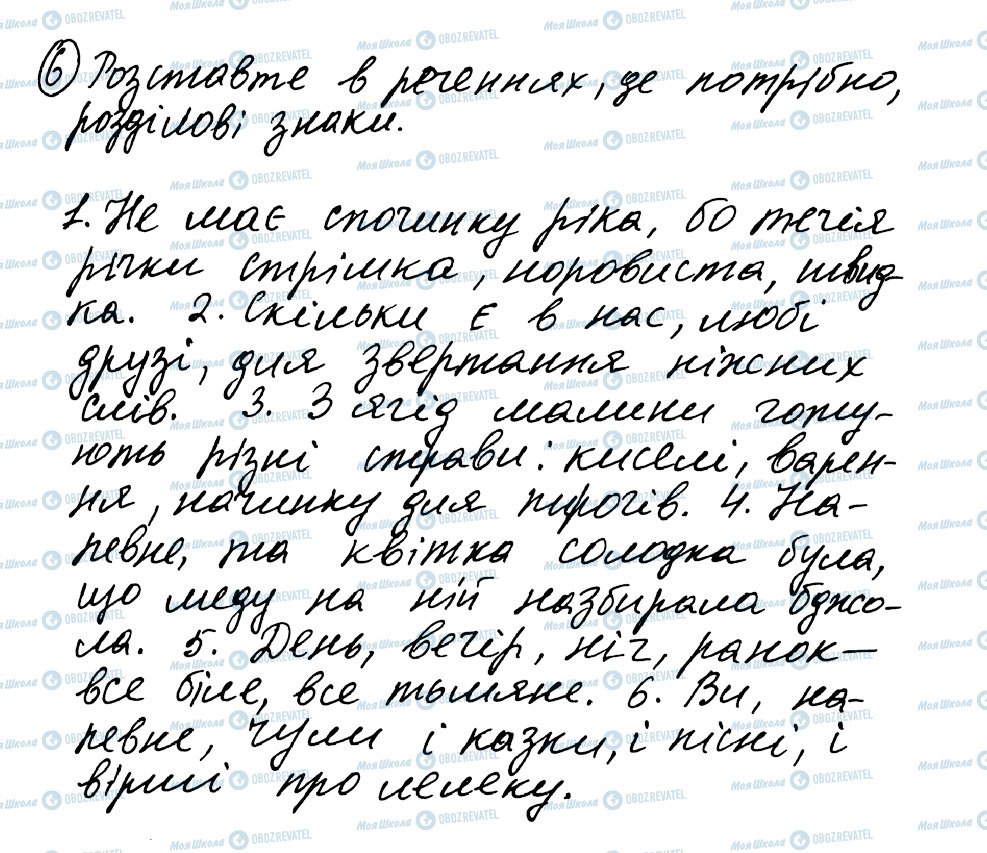 6 Розставте в реченнях, де потрібно,
розділові знаки.
1. Не має спочинку ріка, бо течія
річки стрімка, норовиста, швид
ка. 2. Скільки є в нас, любі
друзі, для звертання ніжних
слів. 3. З ягід малини готу-
ють різні страви: киселі, варен-
ня, начинку для пирогів. 4. На-
певне, та квітка солодка була,
що меду на ній назбирала бджо-
ла. 5. День, вечір, ніч, ранок—
все біле, все тьмяне. 6. Ви, на-
певне, чули і казки, і пісні, і
вірші про лелеку.